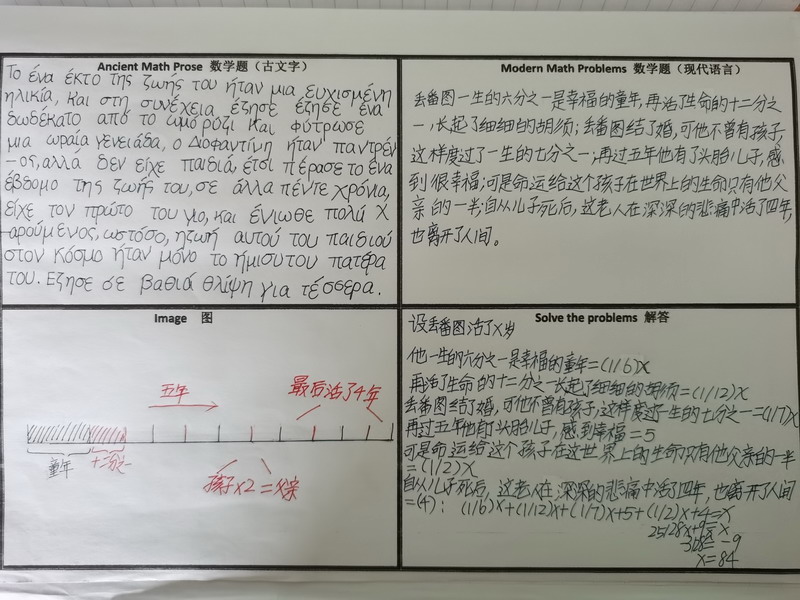 Ancient Math Prose 数学题（古文字）
Το ένα έκτο της ζωής του ήταν μια ευχισμένη
ηλικία, και στη συνέχεια έζησε έζησε ένα
δωδέκατο από το ωμό ρύζι και φύτρωσε
μια ωραία γενειάδα, ο Διοφαντίνη ήταν παντρέν
-ος, αλλά δεν είχε παιδιά, έτσι πέρασε το ένα
έβδομο της ζωής του, σε άλλα πέντε χρόνια,
είχε τον πρώτο του γιο, και ένιωθε πολύ χ
αρούμενος, ωστόσο, η ζωή αυτού του παιδιού
στον κόσμο ήταν μόνο το ήμισυ του πατέρα
του. Εζησε σε βαθιά θλίψη για τέσσερα.
Modern Math Problems 数学题（现代语言）
丢番图一生的六分之一是幸福的童年,再活了生命的十二分之
一,长起了细细的胡须;丢番图结了婚,可他不曾有孩子,
这样度过了一生的七分之一;再过五年他有了头胎儿子,感
到很幸福;可是命运给这个孩子在世界上的生命只有他父
亲的一半;自从儿子死后,这老人在深深的悲痛中活了四年,
也离开了人间。
Image 图
五年
最后活了4年
童年
十二分之一
孩子×2=父亲
Solve the problems 解答
设丢番图活了X岁
他一生的六分之一是幸福的童年=(1/6)X
再活了生命的十二分之一长起了细细的胡须=(1/12)X
丢番图结了婚,可他不曾有孩子,这样度过一生的七分之一=(1/7)X
再过五年他有了头胎儿子,感到幸福=5
可是命运给这个孩子在这世界上的生命只有他父亲的一半
=(1/2)X
自从儿子死后,这老人在深深的悲痛中活了四年,也离开了人间
=(4): (1/6)X+(1/12)X+(1/7)X+5+(1/2)X+4=X
25/28X+9=X
-9
X=84